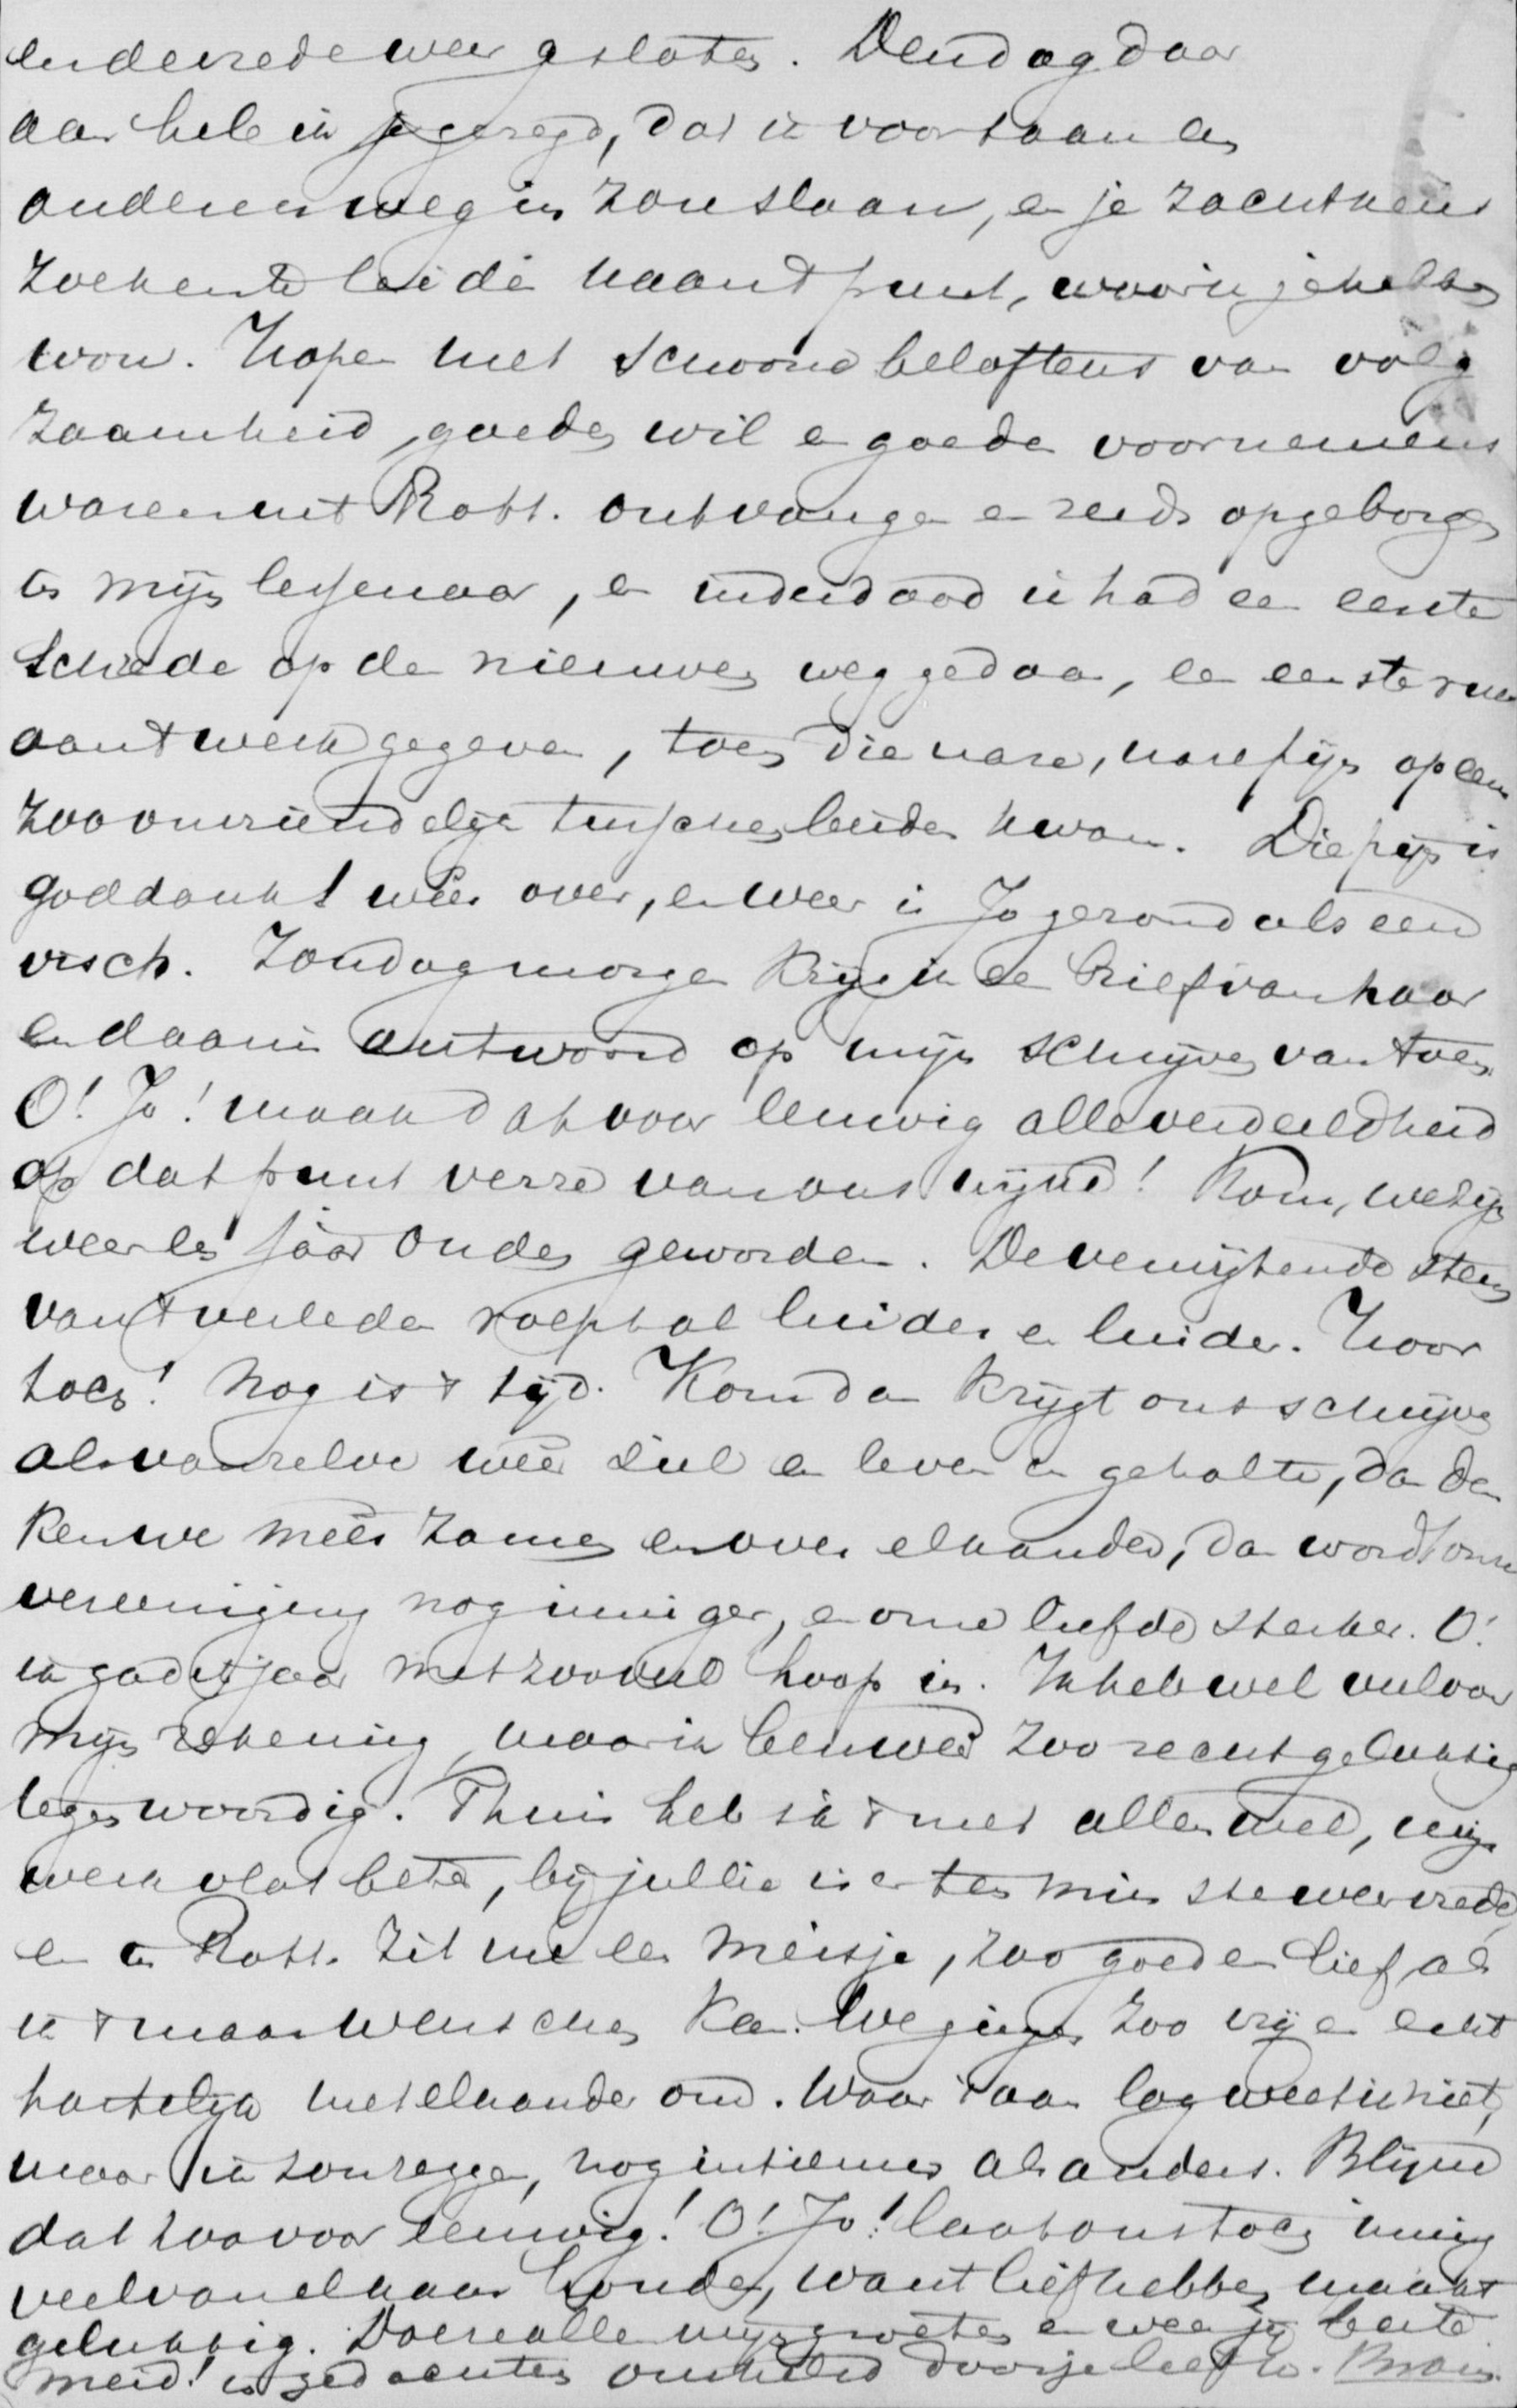 en de vrede weer gesloten. Den dag daar
aan heb ik je gezegd, dat ik voortaan een
anderen weg in zou slaan, en je zachtkens
zoeken te leiden naar 't punt, waar ik je hebben
wou. Hopen met schoone beloftens van volg
zaamheid, goeden wil en goede voornemens
waren uit Rott. ontvangen en reeds opgeborgen
in mijn lessenaar, en inderdaad ik had een eerste
schrede op de nieuwen weg gedaan, en een
aan 't werk gegeven, toen die nare, nare pijn op een
zoo onvriendelijk tusschen beiden kwam. Die pijn is
goddank! weer over, en weer is Jo gezond als een
visch. Zondagmorgen krijg ik een brief van haar
en daarin antwoord op mijn schrijven van toen.
O! Jo! maak dat voor eeuwig alle verdeeldheid
op dat punt verre van ons wijke! Kom, we zijn
weer een jaar ouder geworden. De verwijtende stem
van 't verleden roept al luider en luider. Hoor
toch! Nog is 't tijd. Kom dan krijgt ons schrijven
als van zelve weer ziel en leven en gehalte, dan den
ken we meer zamen en over elkander, dan wordt onze
vereeniging nog inniger, en onze liefde sterker. O!
ik ga dit jaar met zooveel hoop in. Ik heb wel veel voor
mijn rekening, maar ik ben weer zoo recht gelukkig
tegenwoordig. Thuis heb ik 't met allen wel, mijn
werk vlot beter, bij jullie is er ten minste weer vrede,
en in Rott. zit me een meisje, zoo goed en lief als
ik 't maar wenschen kan. We gingen zoo vrij en echt
hartelijk met elkander om. Waar 't aan lag weet ik niet,
maar ik zou zeggen, nog intiemer als anders. Blijve
dat zoo voor eeuwig! O! Jo! laat ons toch innig
veel van elkaar houden, want liefhebben maakt
gelukkig. Doe ze allen mijn groeten en wees jij beste
meid! in gedachten omhelsd door je liefh. Bram.